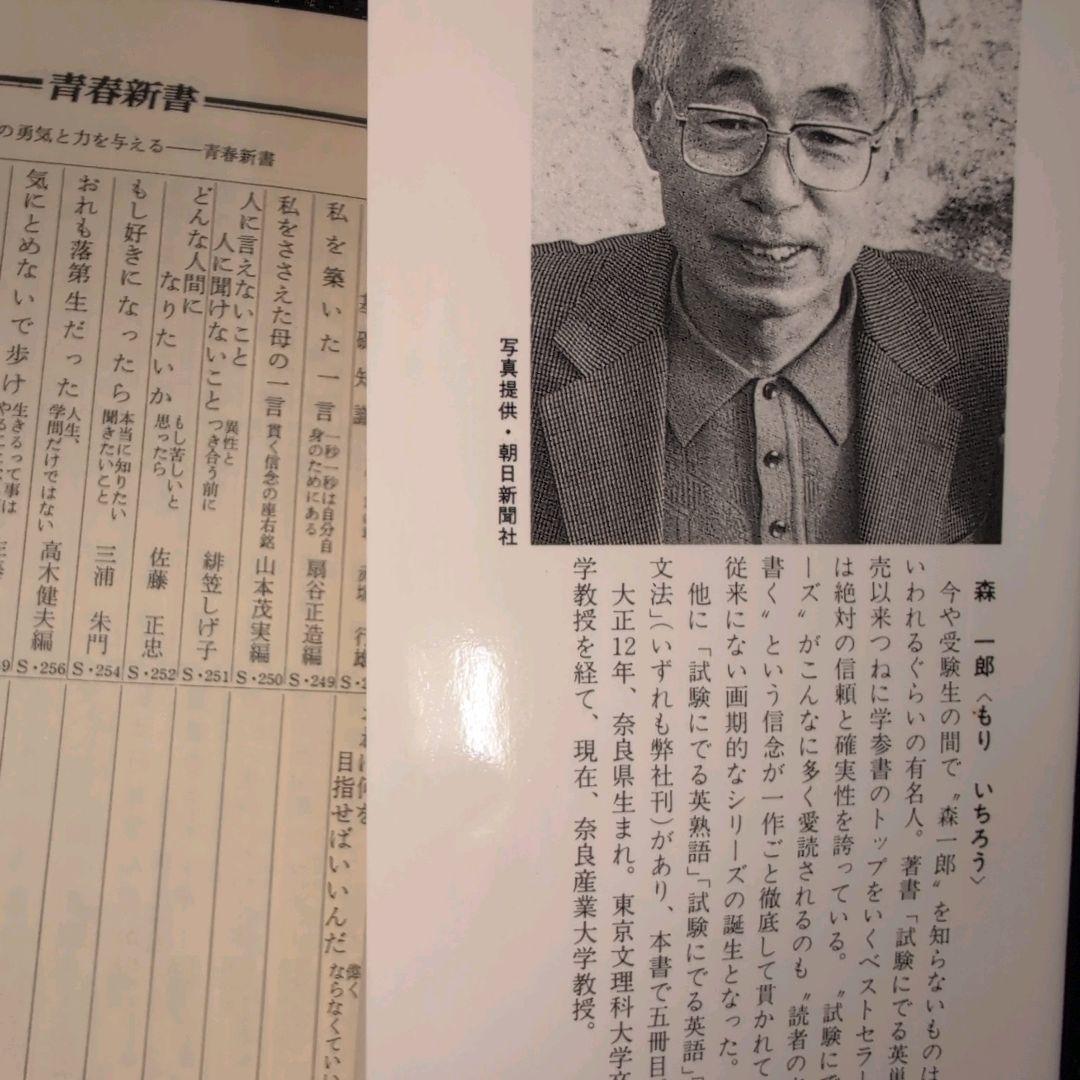 写真提供・朝日新聞社
森　一郎〈もり　いちろう〉
今や受験生の間で〝森一郎〟を知らないものは
いわれるぐらいの有名人。著書「試験にでる英単
売以来つねに学参書のトップをいくベストセラー
は絶対の信頼と確実性を誇っている。〝試験にで
ーズ〟がこんなに多く愛読されるのも〝読者の
書く〟という信念が一作ごと徹底して貫かれて
従来にない画期的なシリーズの誕生となった。
他に「試験にでる英熟語」「試験にでる英語」「
文法」（いずれも弊社刊）があり、本書で五冊目
大正12年、奈良県生まれ。東京文理科大学卒
学教授を経て、現在、奈良産業大学教授。
青春新書
の勇気と力を与える――青春新書
私を築いた一言　一秒一秒は自分自身のためにある　扇谷正造編　S・249
私をささえた母の一言　貫く信念の座右銘　山本茂実編　S・250
人に言えないこと人に聞けないこと　異性とつき合う前に　緋笠しげ子　S・251
どんな人間になりたいか　もし苦しいと思ったら　佐藤　正忠　S・252
もし好きになったら　本当に知りたい聞きたいこと　三浦　朱門　S・254
おれも落第生だった　人生、学問だけではない　高木健夫編　S・256
気にとめないで歩け　生きるって事は
目指せばいいんだ　強くならなくてい